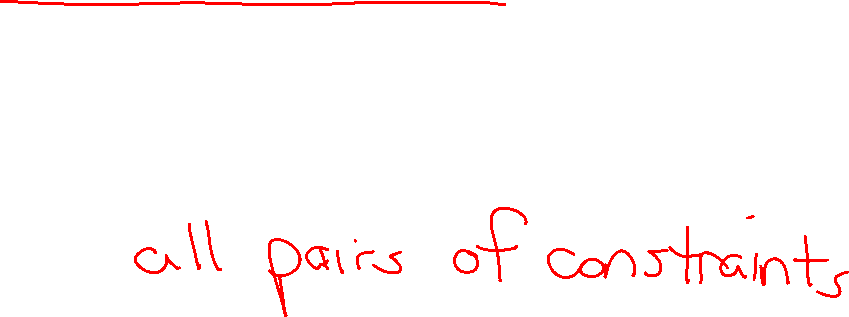 all pairs of constraints